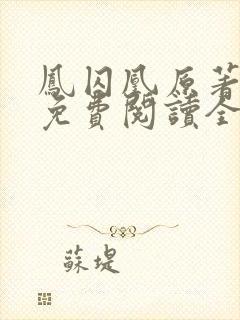 鳳囚凰原著
免費閱讀全
蘇堤